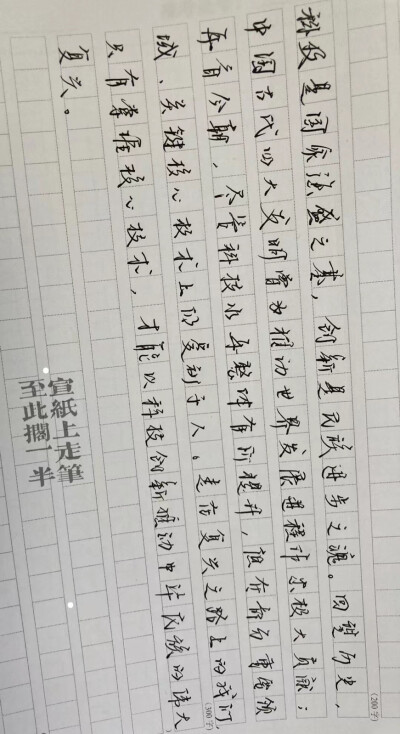 科技是国家强盛之基，创新是民族进步之魂。回望历史，
(200字)
中国古代四大发明曾为推动世界发展进程作出极大贡献；
再看今朝，尽管科技水平整体有所提升，但在部分重点领
域、关键核心技术上仍受制于人。走在复兴之路上的我们，
(300字)
只有掌握核心技术，才能以科技创新推动中华民族的伟大
复兴。
宣紙上走筆
至此擱一半